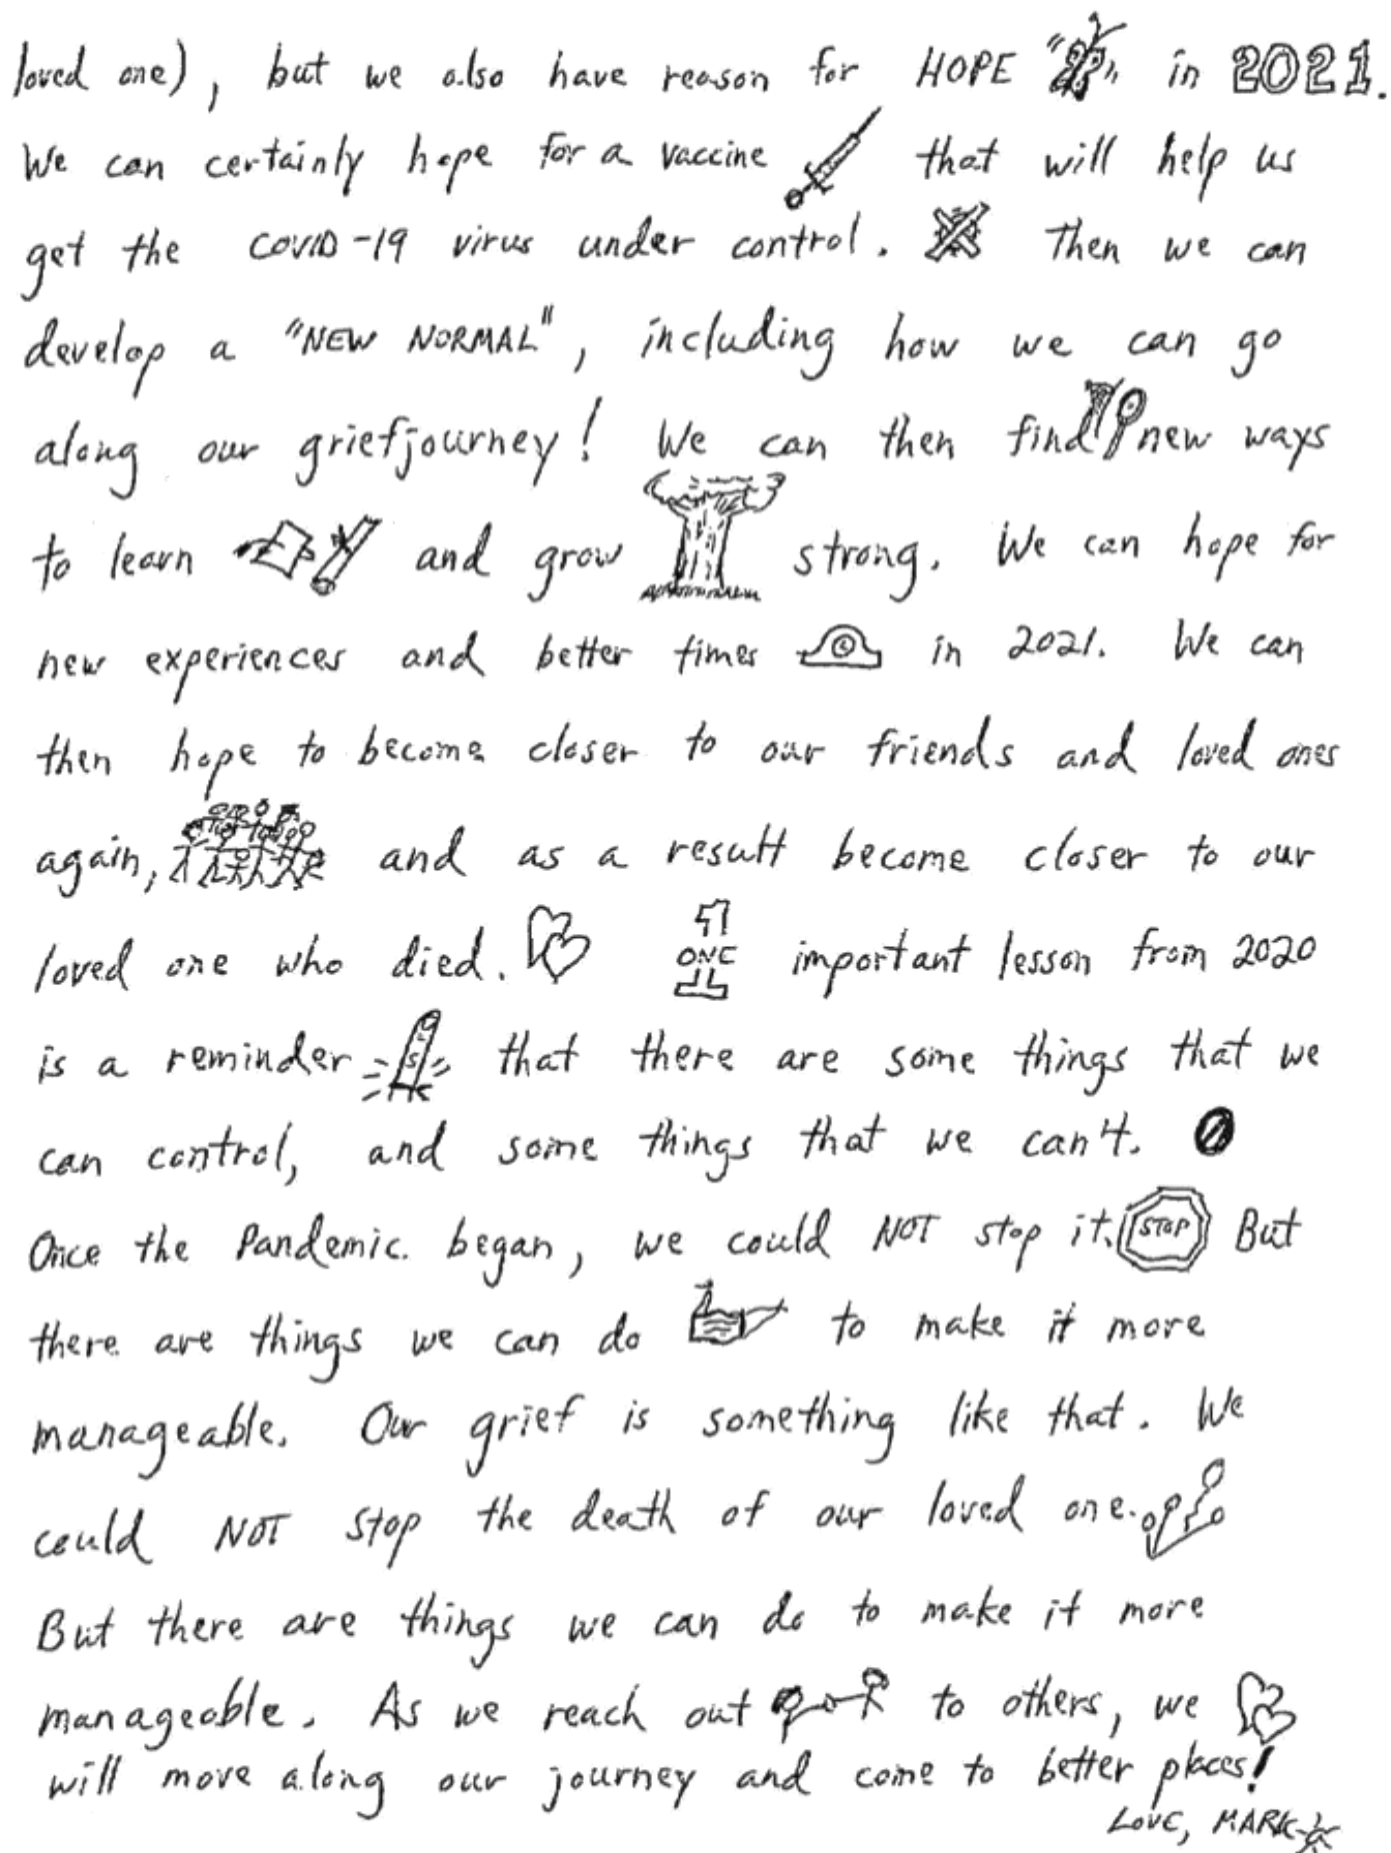 loved one), but we also have reason for HOPE in 2021.
We can certainly hope for a vaccine that will help us
get the COVID-19 virus under control. Then we can
develop a "NEW NORMAL", including how we can go
along our griefjourney! We can then find new ways
to learn and grow strong. We can hope for
new experiences and better times in 2021. We can
then hope to become closer to our friends and loved ones
again, and as a result become closer to our
loved one who died. 1 ONE important lesson from 2020
is a reminder that there are some things that we
can control, and some things that we can't.
Once the Pandemic began, we could NOT stop it. STOP But
there are things we can do to make it more
manageable. Our grief is something like that. We
could NOT stop the death of our loved one.
But there are things we can do to make it more
manageable. As we reach out to others, we
will move along our journey and come to better places!
LOVE, MARK